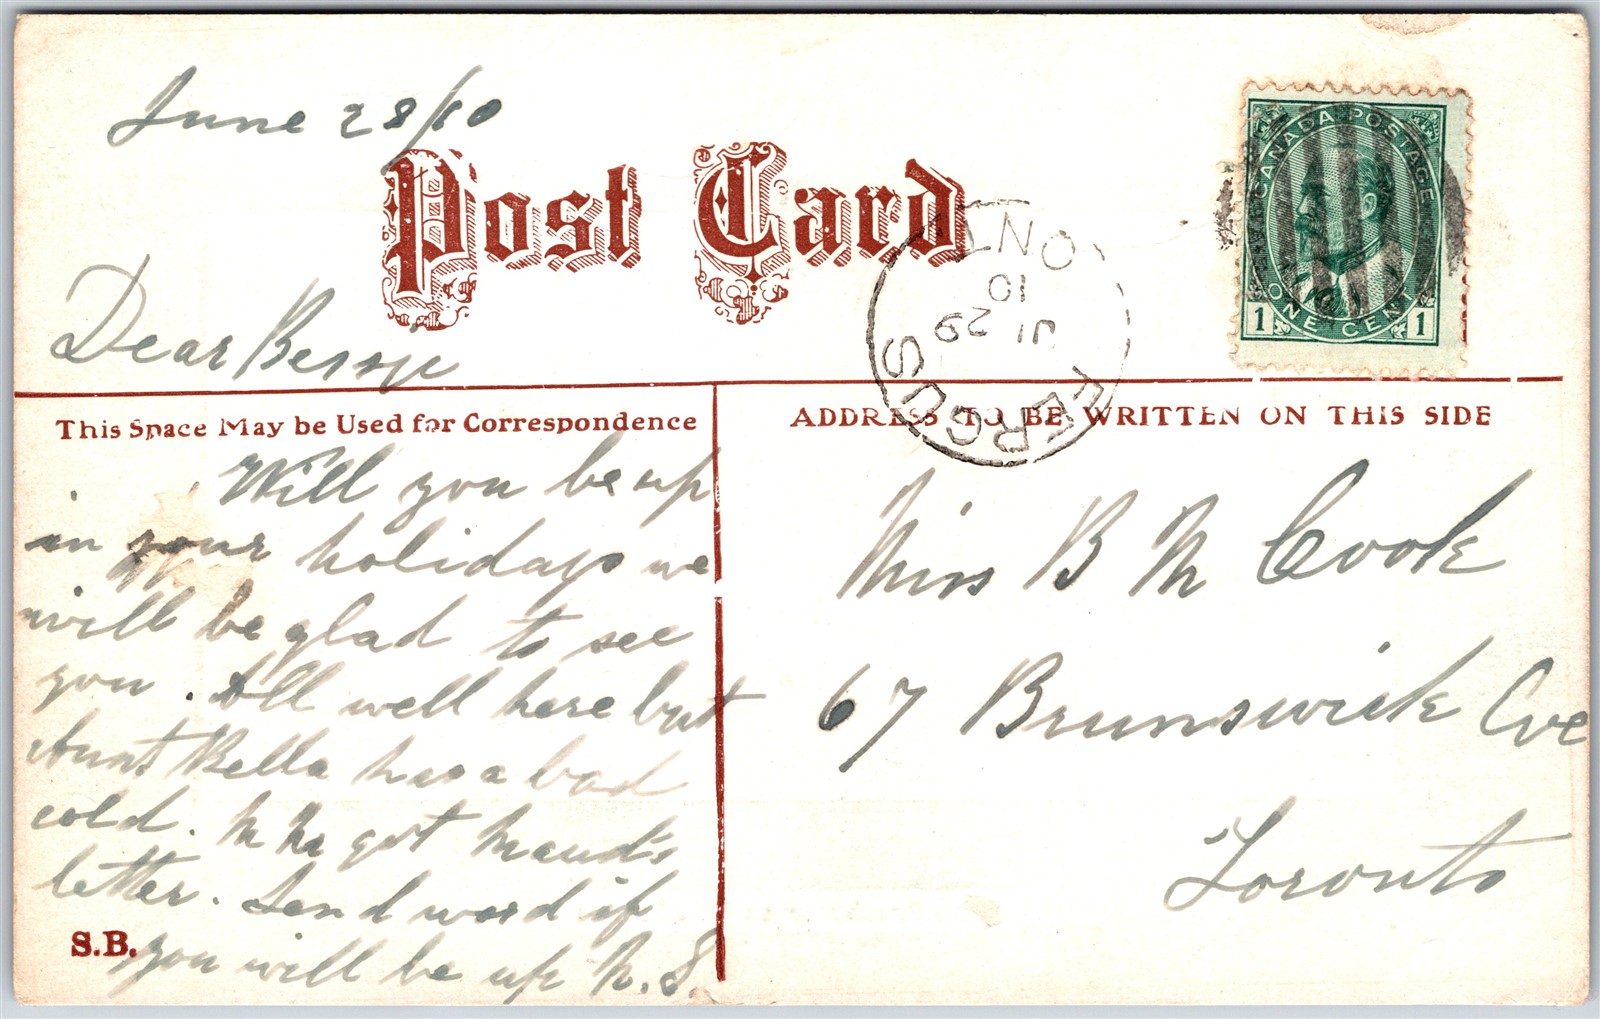 June 28/10
Post Card
CANADA POSTAGE
ONE CENT
1 1
FERGUS
JL 29
10
ONT
Dear Bessie
This Space May be Used for Correspondence
ADDRESS TO BE WRITTEN ON THIS SIDE
Will you be up
in your holidays we
will be glad to see
you. All well here but
Aunt Bella has a bad
cold. got Maud's
letter. Send word if
you will be up M.S.
S.B.
Miss B M Cook
67 Brunswick Ave
Toronto